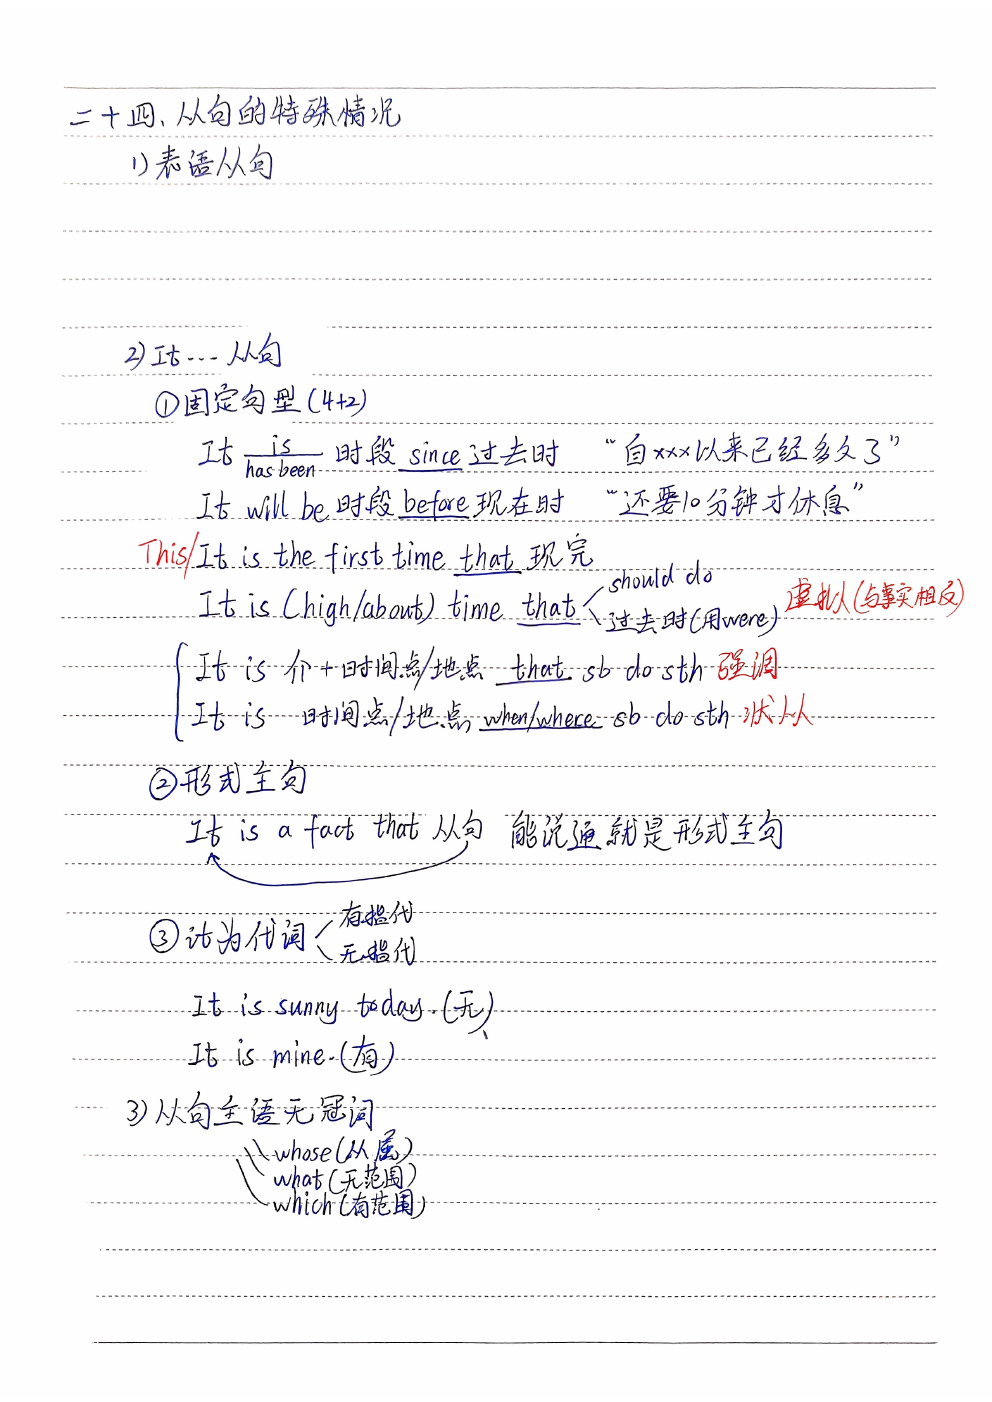 二十四、从句的特殊情况
1) 表语从句
2) It … 从句
① 固定句型 (4+2)
It is/has been 时段 since 过去时 “自xxx以来已经多久了”
It will be 时段 before 现在时 “还要10分钟才休息”
This/It is the first time that 现完
It is (high/about) time that should do
过去时(用were) 虚拟(与事实相反)
It is 介+时间点/地点 that sb do sth 强调
It is 时间点/地点 when/where sb do sth 状从
② 形式主句
It is a fact that 从句 能说通就是形式主句
③ it为代词 有指代
无指代
It is sunny today. (无)
It is mine. (有)
3) 从句主语无冠词
whose (从属)
what (无范围)
which (有范围)